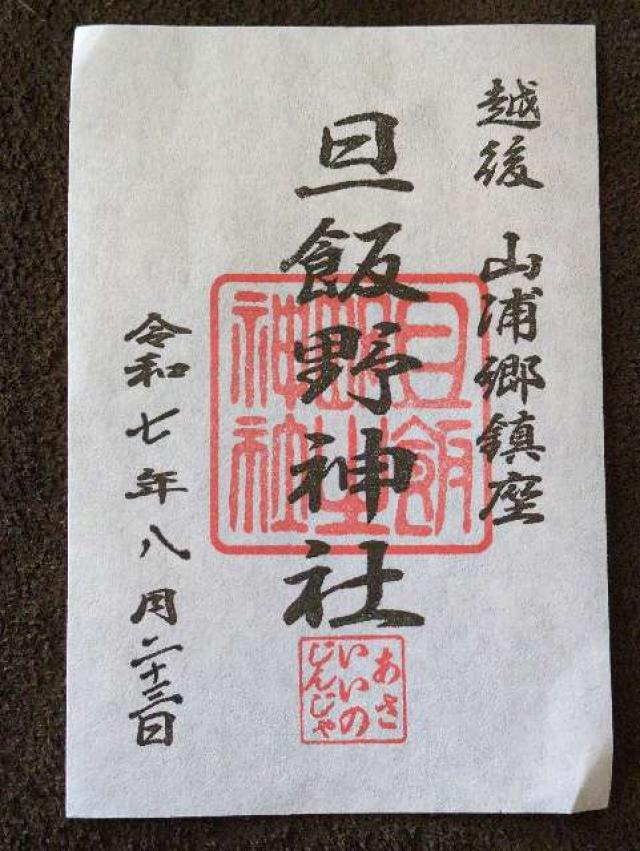 越後 山浦郷鎮座
旦飯野神社
あさ
いいの
じんじゃ
令和七年八月二十三日